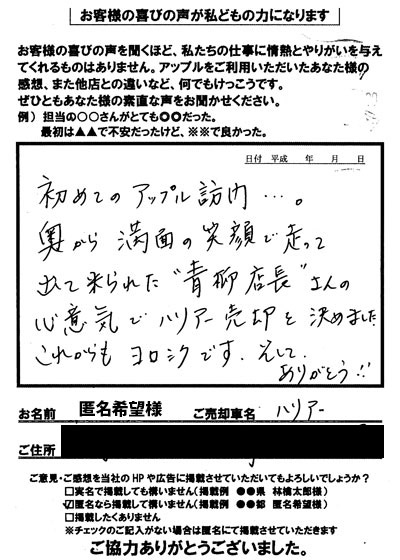 お客様の喜びの声が私どもの力になります
お客様の喜びの声を聞くほど、私たちの仕事に情熱とやりがいを与え
てくれるものはありません。アップルをご利用いただいたあなた様の
感想、また他店との違いなど、何でもけっこうです。
ぜひともあなた様の素直な声をお聞かせください。
例）担当の○○さんがとても○○だった。
最初は▲▲で不安だったけど、※※で良かった。
日付 平成 年 月 日
初めてのアップル訪問…。
奥から満面の笑顔で走って
出て来られた"青柳店長"さんの
心意気でハリアー売却を決めました
これからもヨロシクです。そして、
ありがとう!!
お名前 匿名希望様 ご売却車名 ハリアー
ご住所
ご意見・ご感想を当社のHPや広告に掲載させていただいてもよろしいでしょうか？
□実名で掲載しても構いません（掲載例 ●●県 林檎太郎様）
☑匿名なら掲載して構いません（掲載例 ●●都 匿名希望様）
□掲載したくありません
※チェックのご記入がない場合は匿名にて掲載させていただきます
ご協力ありがとうございました。